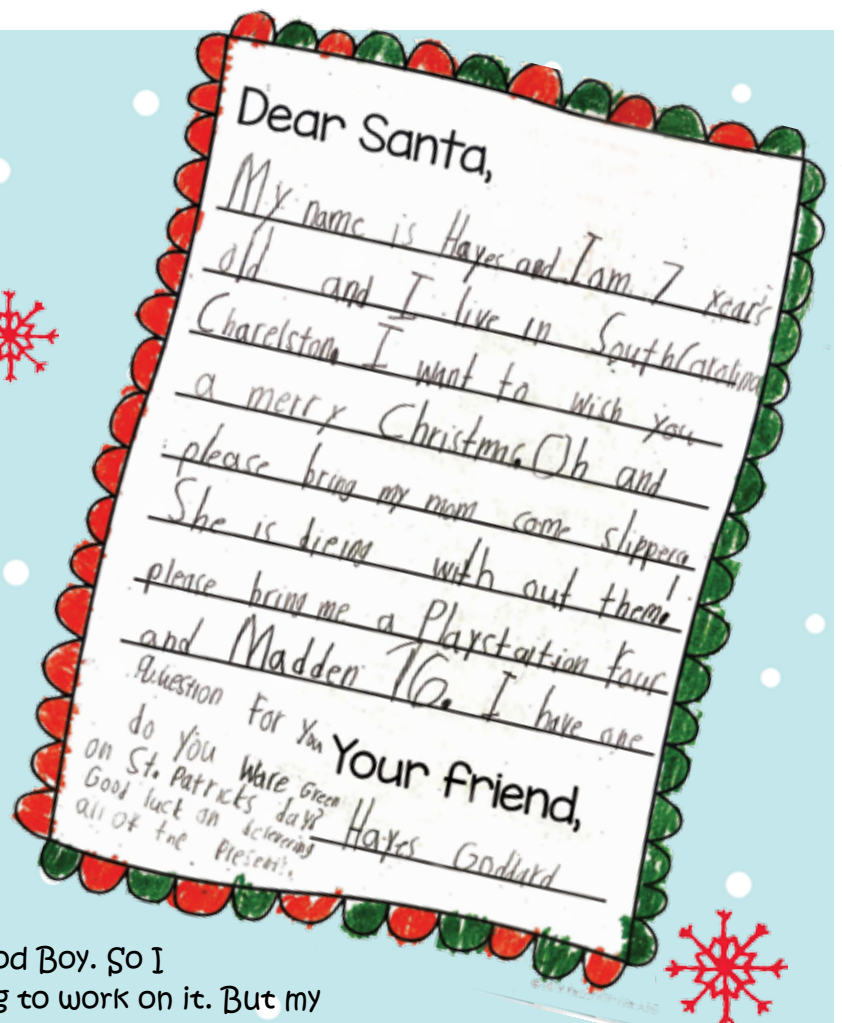 Dear Santa,
My name is Hayes and I am 7 xears
old and I live in South Carolina
Charelston. I want to wish you
a merry Christmc. Oh and
please bring my mom some slippers.
She is dieing with out them!
please bring me a Playstartion four
and Madden 16. I have one
Quhestion For You
do you Ware Green
on St. Patricks day?
Good luck on delevering
all of the Presents.
Your friend,
Hayes Goddard
od Boy. So I
g to work on it. But my